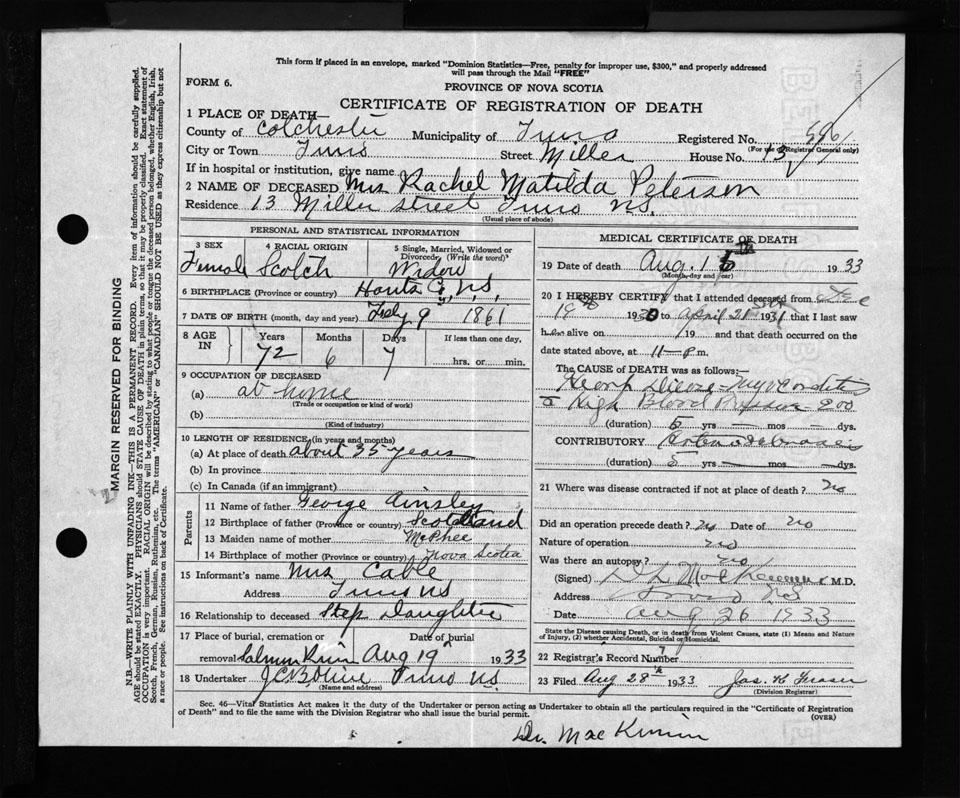 This form if placed in an envelope, marked "Dominion Statistics—Free, penalty for improper use, $300," and properly addressed
will pass through the Mail "FREE"
FORM 6.
PROVINCE OF NOVA SCOTIA
CERTIFICATE OF REGISTRATION OF DEATH
1 PLACE OF DEATH—
County of Colchester Municipality of Truro Registered No.
(For use of Registrar General only)
City or Town Truro Street Miller House No. 13
If in hospital or institution, give name
2 NAME OF DECEASED Mrs Rachel Matilda Peterson
Residence 13 Miller street Truro N.S.
(Usual place of abode)
PERSONAL AND STATISTICAL INFORMATION
3 SEX 4 RACIAL ORIGIN 5 Single, Married, Widowed or Divorced (Write the word)
Female Scotch Widow
6 BIRTHPLACE (Province or country) Hants Co, N.S.
7 DATE OF BIRTH (month, day and year) 9 1861
8 AGE IN Years Months Days If less than one day,
72 6 7 hrs. or min.
9 OCCUPATION OF DECEASED
(a) at home
(Trade or occupation or kind of work)
(b)
(Kind of industry)
10 LENGTH OF RESIDENCE (in years and months)
(a) At place of death about 35 years
(b) In province
(c) In Canada (if an immigrant)
Parents
11 Name of father George Ainsley
12 Birthplace of father (Province or country) Scotland
13 Maiden name of mother McPhee
14 Birthplace of mother (Province or country) Nova Scotia
15 Informant's name Mrs Cable
Address Truro NS
16 Relationship to deceased Step Daughter
17 Place of burial, cremation or removal Date of burial
Salmon River Aug 19 1933
18 Undertaker Truro N.S.
(Name and address)
MEDICAL CERTIFICATE OF DEATH
19 Date of death Aug. 1933
(Month, day and year)
20 I HEREBY CERTIFY that I attended deceased from
1930 to April 21 1931 that I last saw
h alive on 19 and that death occurred on the
date stated above, at 11 P.m.
The CAUSE OF DEATH was as follows:—
Heart Disease
High Blood Pressure 200
(duration) 5 yrs — mos — dys.
CONTRIBUTORY
(duration) 5 yrs — mos — dys.
21 Where was disease contracted if not at place of death? no
Did an operation precede death? no Date of no
Nature of operation no
Was there an autopsy? no
(Signed) M.D.
Address
Date Aug 26 1933
State the Disease causing Death, or in death from Violent Causes, state (1) Means and Nature
of Injury, (2) whether Accidental, Suicidal or Homicidal.
22 Registrar's Record Number
23 Filed Aug 28 1933 Jas. K. Fraser
(Division Registrar)
Sec. 46—Vital Statistics Act makes it the duty of the Undertaker or person acting as Undertaker to obtain all the particulars required in the "Certificate of Registration
of Death" and to file the same with the Division Registrar who shall issue the burial permit.
(OVER)
Dr. MacKinnon
MARGIN RESERVED FOR BINDING
N.B.—WRITE PLAINLY WITH UNFADING INK—THIS IS A PERMANENT RECORD. Every item of information should be carefully supplied.
AGE should be stated EXACTLY. PHYSICIANS should STATE CAUSE OF DEATH in plain terms, so that it may be properly classified. Exact statement of
OCCUPATION is very important. RACIAL ORIGIN will be described by stating to what people or tongue the deceased person belonged, whether English, Irish,
Scotch, French, German, Russian, Ruthenian, etc. The terms "AMERICAN" or "CANADIAN" SHOULD NOT BE USED as they express citizenship but not
a race or people. See instructions on back of Certificate.